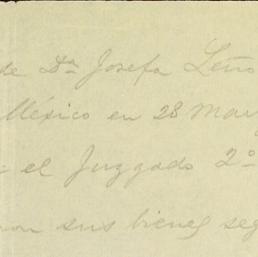 de Dª Josefa Leño
México en 28 May
el Juzgado 2º
sus bienes seg